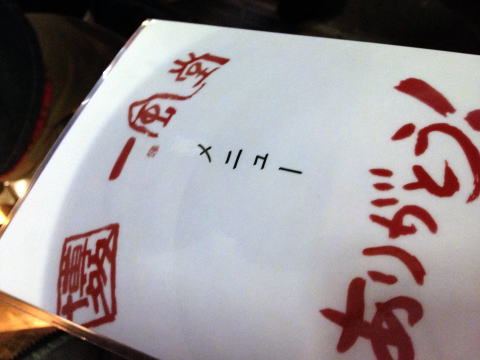 博多
一風堂
メニュー
ありがとう!